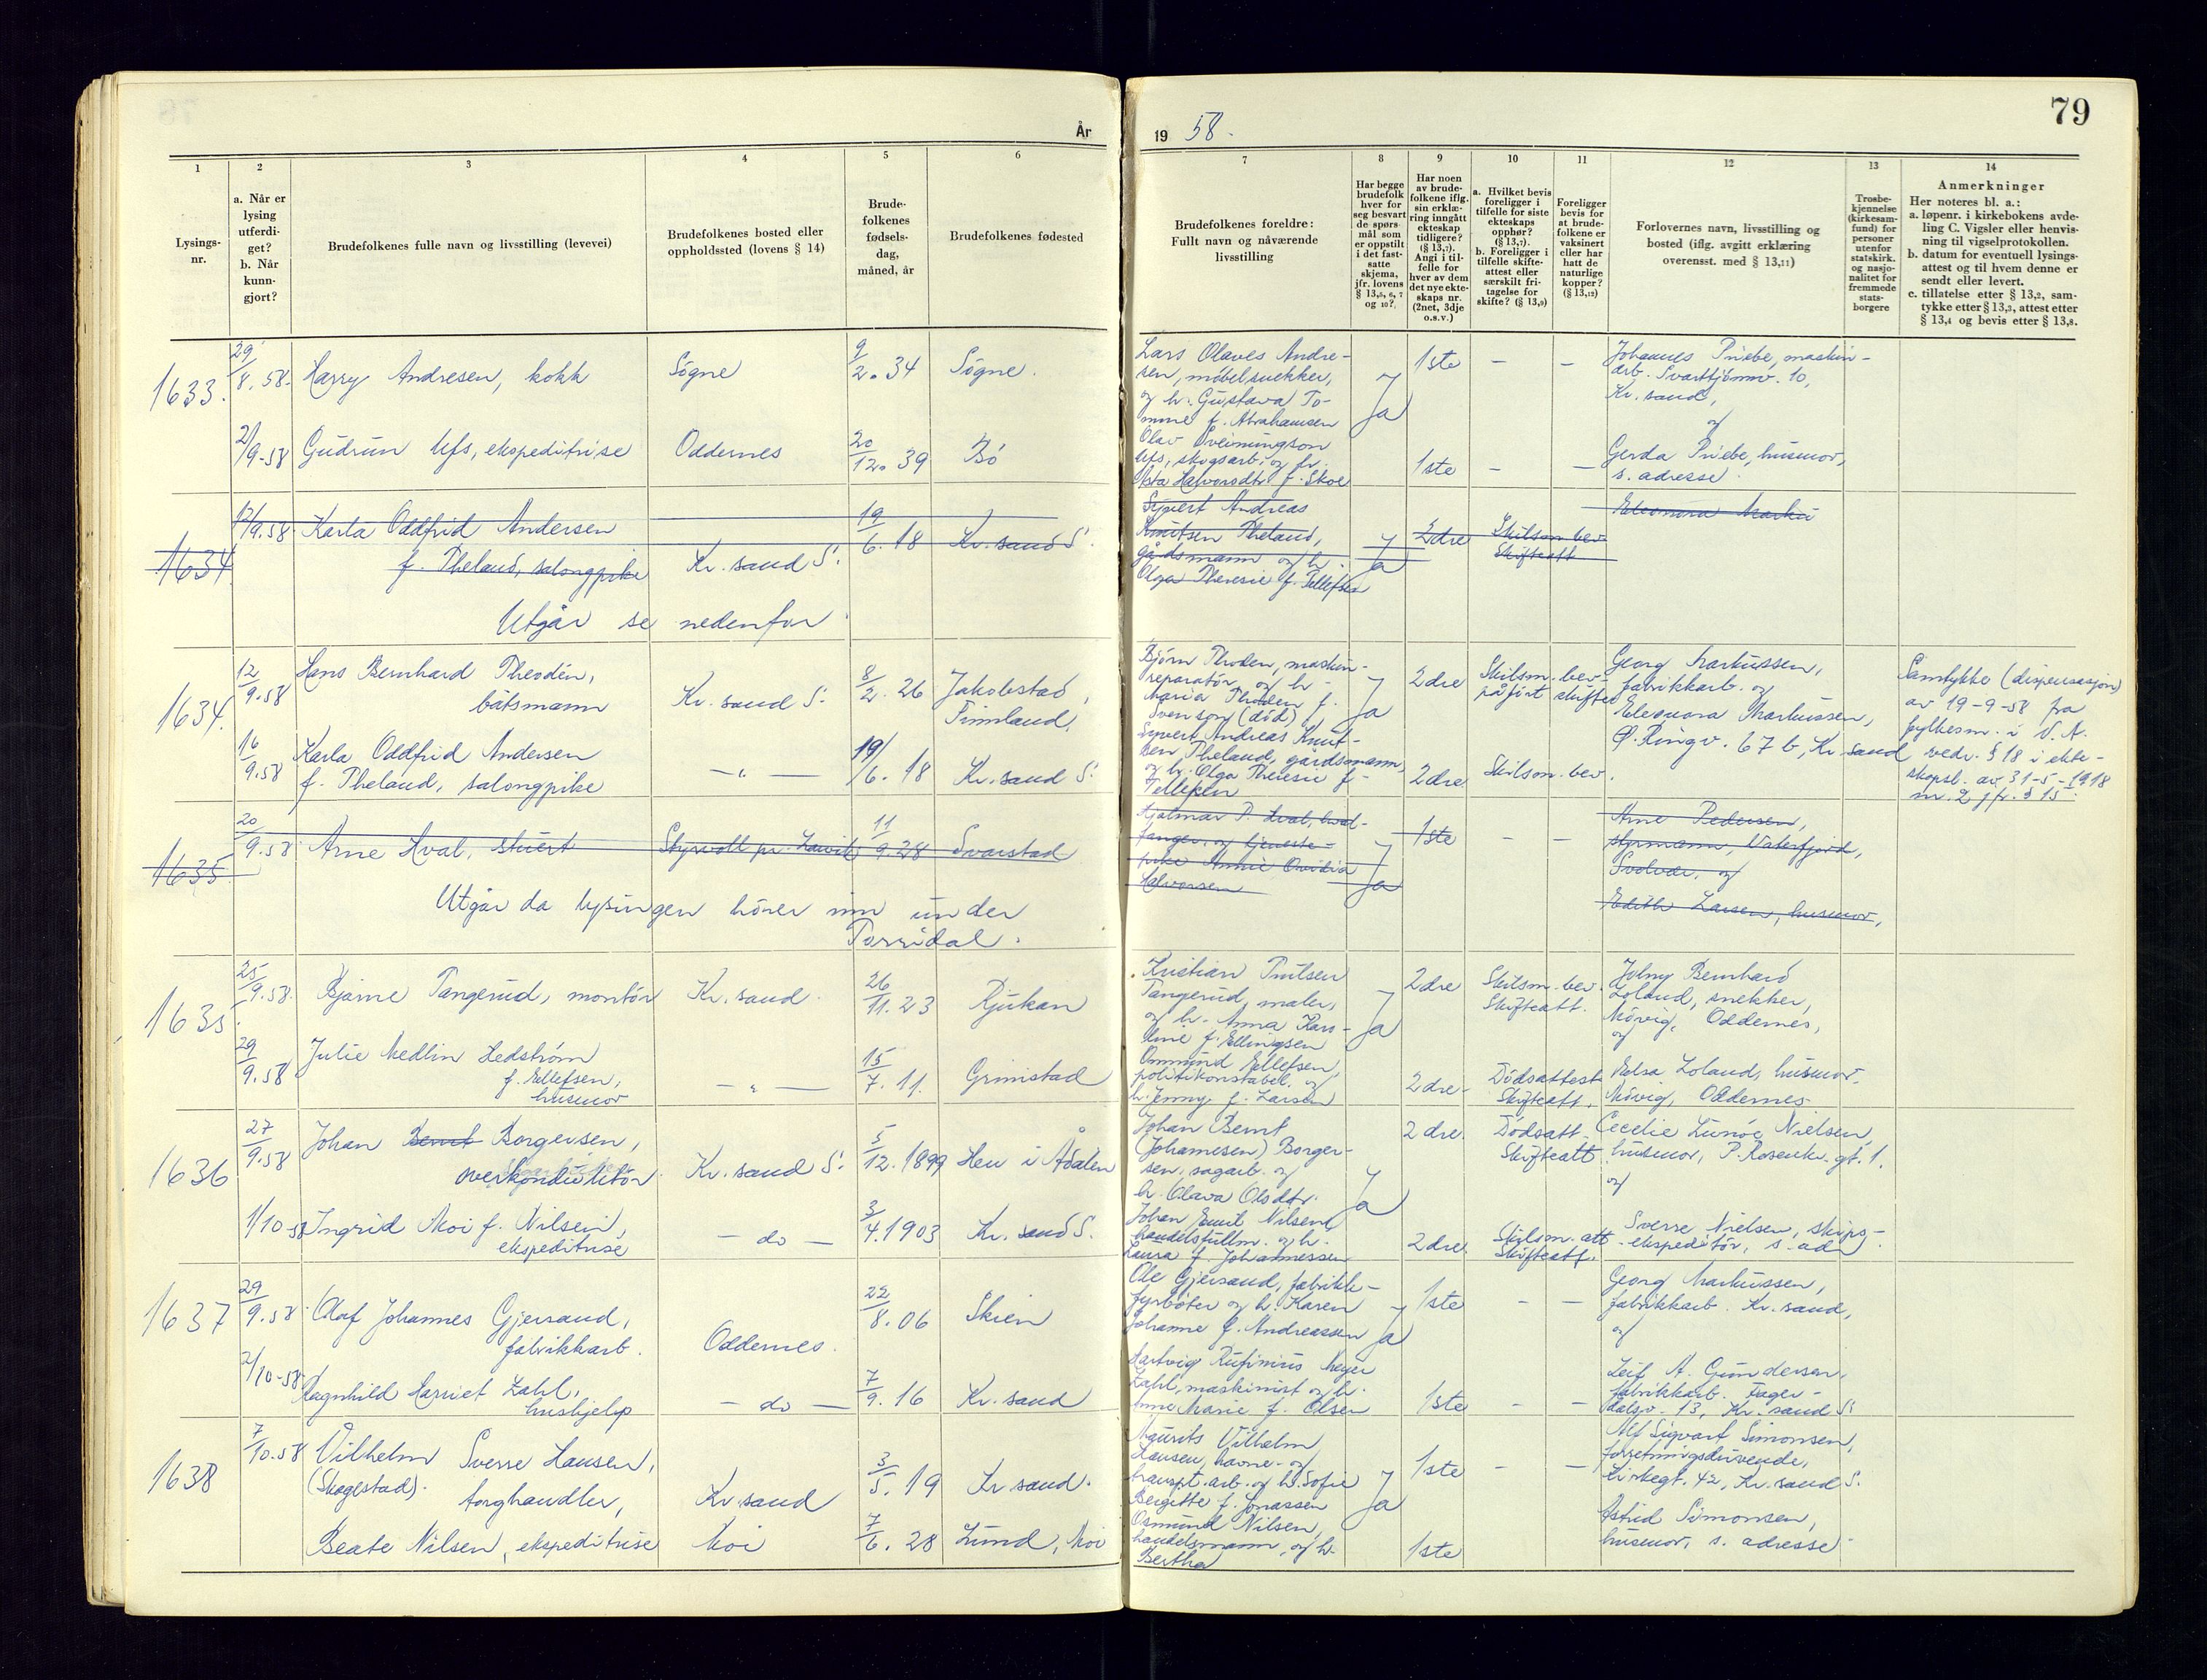 79
År 19 58.
1
2
3
4
5
6
7
8
9
10
11
12
13
14
Lysings-
nr.
a. Når er
lysing
utferdi-
get?
b. Når
kunn-
gjort?
Brudefolkenes fulle navn og livsstilling (levevei)
Brudefolkenes bosted eller
oppholdssted (lovens § 14)
Brude-
folkenes
fødsels-
dag,
måned, år
Brudefolkenes fødested
Brudefolkenes foreldre:
Fullt navn og nåværende
livsstilling
Har begge
brudefolk
hver for
seg besvart
de spørs-
mål som
er oppstilt
i det fast-
satte
skjema,
jfr. lovens
§ 13,5, 6, 7
og 10?
Har noen
av brude-
folkene iflg.
sin erklæ-
ring inngått
ekteskap
tidligere?
(§ 13,7).
Angi i til-
felle for
hver av dem
det nye ekte-
skaps nr.
(2net, 3dje
o.s.v.)
a. Hvilket bevis
foreligger i
tilfelle for siste
ekteskaps
opphør?
(§ 13,7).
b. Foreligger i
tilfelle skifte-
attest eller
særskilt fri-
tagelse for
skifte? (§ 13,9)
Foreligger
bevis for
at brude-
folkene er
vaksinert
eller har
hatt de
naturlige
kopper?
(§ 13,12)
Forlovernes navn, livsstilling og
bosted (iflg. avgitt erklæring
overensst. med § 13,11)
Trosbe-
kjennelse
(kirkesam-
fund) for
personer
utenfor
statskirk.
og nasjo-
nalitet for
fremmede
stats-
borgere
Anmerkninger
Her noteres bl. a.:
a. løpenr. i kirkebokens avde-
ling C. Vigsler eller henvis-
ning til vigselprotokollen.
b. datum for eventuell lysings-
attest og til hvem denne er
sendt eller levert.
c. tillatelse etter § 13,2, sam-
tykke etter § 13,3, attest etter
§ 13,4 og bevis etter § 13,8.
1633.
29/8.58. Harry Andresen, kokk
Søgne
9/2. 34
Søgne.
Lars Olaves Andre-
sen, møbelsnekker,
og h. Gustava To-
mine f. Abrahamsen
Ja
1ste
-
-
Johannes Priebe, maskin-
arb. Svarttjønnv. 10,
Kr. sand,
og
2/9-58 Gudrun Ufs, ekspeditrise
Oddernes
20/12. 39
Bø
Olav Sveinungson
Ufs, skogsarb. og h.
Åsta Halvorsdtr f. Skoe
1ste
-
-
Gerda Priebe, husmor,
s. adresse.
1634
12/9.58 Karla Oddfrid Andersen
f. Theland, salongpike
Kr. sand S.
19/6.18
Kr. sand S.
Syvert Andreas
Knutsen Theland,
gårdsmann og h.
Olga Theresie f. Tellefsen
Ja
2dre
Skilsm. bev.
Skifteatt
Eleonora Marku
Utgår se nedenfor.
1634.
12/9.58 Hans Bernhard Theodén,
båtsmann
Kr. sand S.
8/2. 26
Jakobstad,
Finnland.
Bjørn Thoden, maskin-
reparatør, og h.
Maria Thoden f.
Svenson (død)
Ja
2dre
Skilsm. bev.
påført skifte
Georg Markussen,
fabrikkarb. og
Eleonora Markussen,
Ø. Ringv. 67 b, Kr sand
Samtykke (dispensasjon)
av 19-9-58 fra
fylkesm. i V. A.
vedr. § 18 i ekte-
skapsl. av 31-5-1918
nr. 2 jfr. § 15.
16/9.58 Karla Oddfrid Andersen
f. Theland, salongpike
— " —
19/6. 18
Kr. sand S.
Syvert Andreas Knut-
sen Theland, gårdsmann,
og h. Olga Theresie f.
Tellefsen
2dre.
Skilsm. bev.
1635.
20/9.58 Arne Hval, stuert
Styrvoll pr. Larvik
11/9.28
Svarstad
Hjalmar P. Hval,
fanger, og tjeneste-
pike Annie Ovidia
Halvorsen
Ja
1ste
-
-
Arne Pedersen,
styrmann, Vaterfjord,
Svolvær, og
Edith Larsen, husmor,
Utgår da lysingen hører inn under
Torridal.
1635.
25/9.58. Bjarne Tangerud, montør
Kr. sand.
26/11. 23
Rjukan
Kristian Paulsen
Tangerud, maler,
og h. Anna Karo-
line f. Ellingsen
Ja
2dre
Skilsm. bev.
Skifteatt.
Johny Bernhard
Loland, snekker,
Møvig, Oddernes,
og
29/9.58 Julie Medlin Hedstrøm
f. Ellefsen,
husmor
— " —
15/7. 11.
Grimstad
Ommund Ellefsen,
politikonstabel, og
h. Jenny f. Larsen
2dre.
Dødsattest
Skifteatt.
Elsa Loland, husmor.
Møvig, Oddernes.
1636
27/9.58 Johan Bernt Borgersen,
overkonduktør
Kr. sand S.
5/12. 1899
Hen i Ådalen
Johan Bernt
(Johannesen) Borger-
sen, sagarb. og
h. Olava Olsdtr.
Ja
2 dre.
Dødsatt
Skifteatt
Cecelie Lunøe Nielsen,
husmor, P. Rosenkr. gt. 1.
og
1/10-58 Ingrid Moi f. Nilsen,
ekspeditrise
— do —
3/4. 1903
Kr. sand S.
Johan Emil Nilsen,
handelsfullm. og h.
Laura f. Johannessen
2dre.
Skilsm. att
Skifteatt.
Sverre Nielsen, skips-
ekspeditør, s. ad
1637
29/9.58 Olaf Johannes Gjersand,
fabrikkarb.
Oddernes.
22/8. 06
Skien
Ole Gjersand, fabrikk-
fyrbøter og h. Karen
Johanne f. Andreassen
Ja
1ste
-
-
Georg Markussen,
fabrikkarb. Kr. sand,
og
2/10-58 Ragnhild Harriet Zahl,
hushjelp
— do —
7/9. 16
Kr. sand
Hartvig Rufinius Meyer
Zahl, maskinist og h.
Anne Marie f. Olsen
1ste
-
-
Leif A. Gundersen,
fabrikkarb. Fager-
dalsv. 13, Kr. sand S.
1638
7/10.58 Vilhelm Sverre Hansen,
(Skogestad).
torghandler,
Kr sand
3/5. 19
Kr sand.
Maurits Vilhelm
Hansen, havne- og
transpt. arb. og h. Sofie
Bergitte f. Jonassen
Ja
1ste
-
-
Alf Sigvart Simonsen,
forretningsdrivende,
Kirkegt. 42, Kr. sand S.
Beate Nilsen, ekspeditrise
Moi
7/6. 28
Lund, Moi
Osmund Nilsen,
handelsmann, og h.
Bertha
1ste
Astrid Simonsen,
husmor, s. adresse.